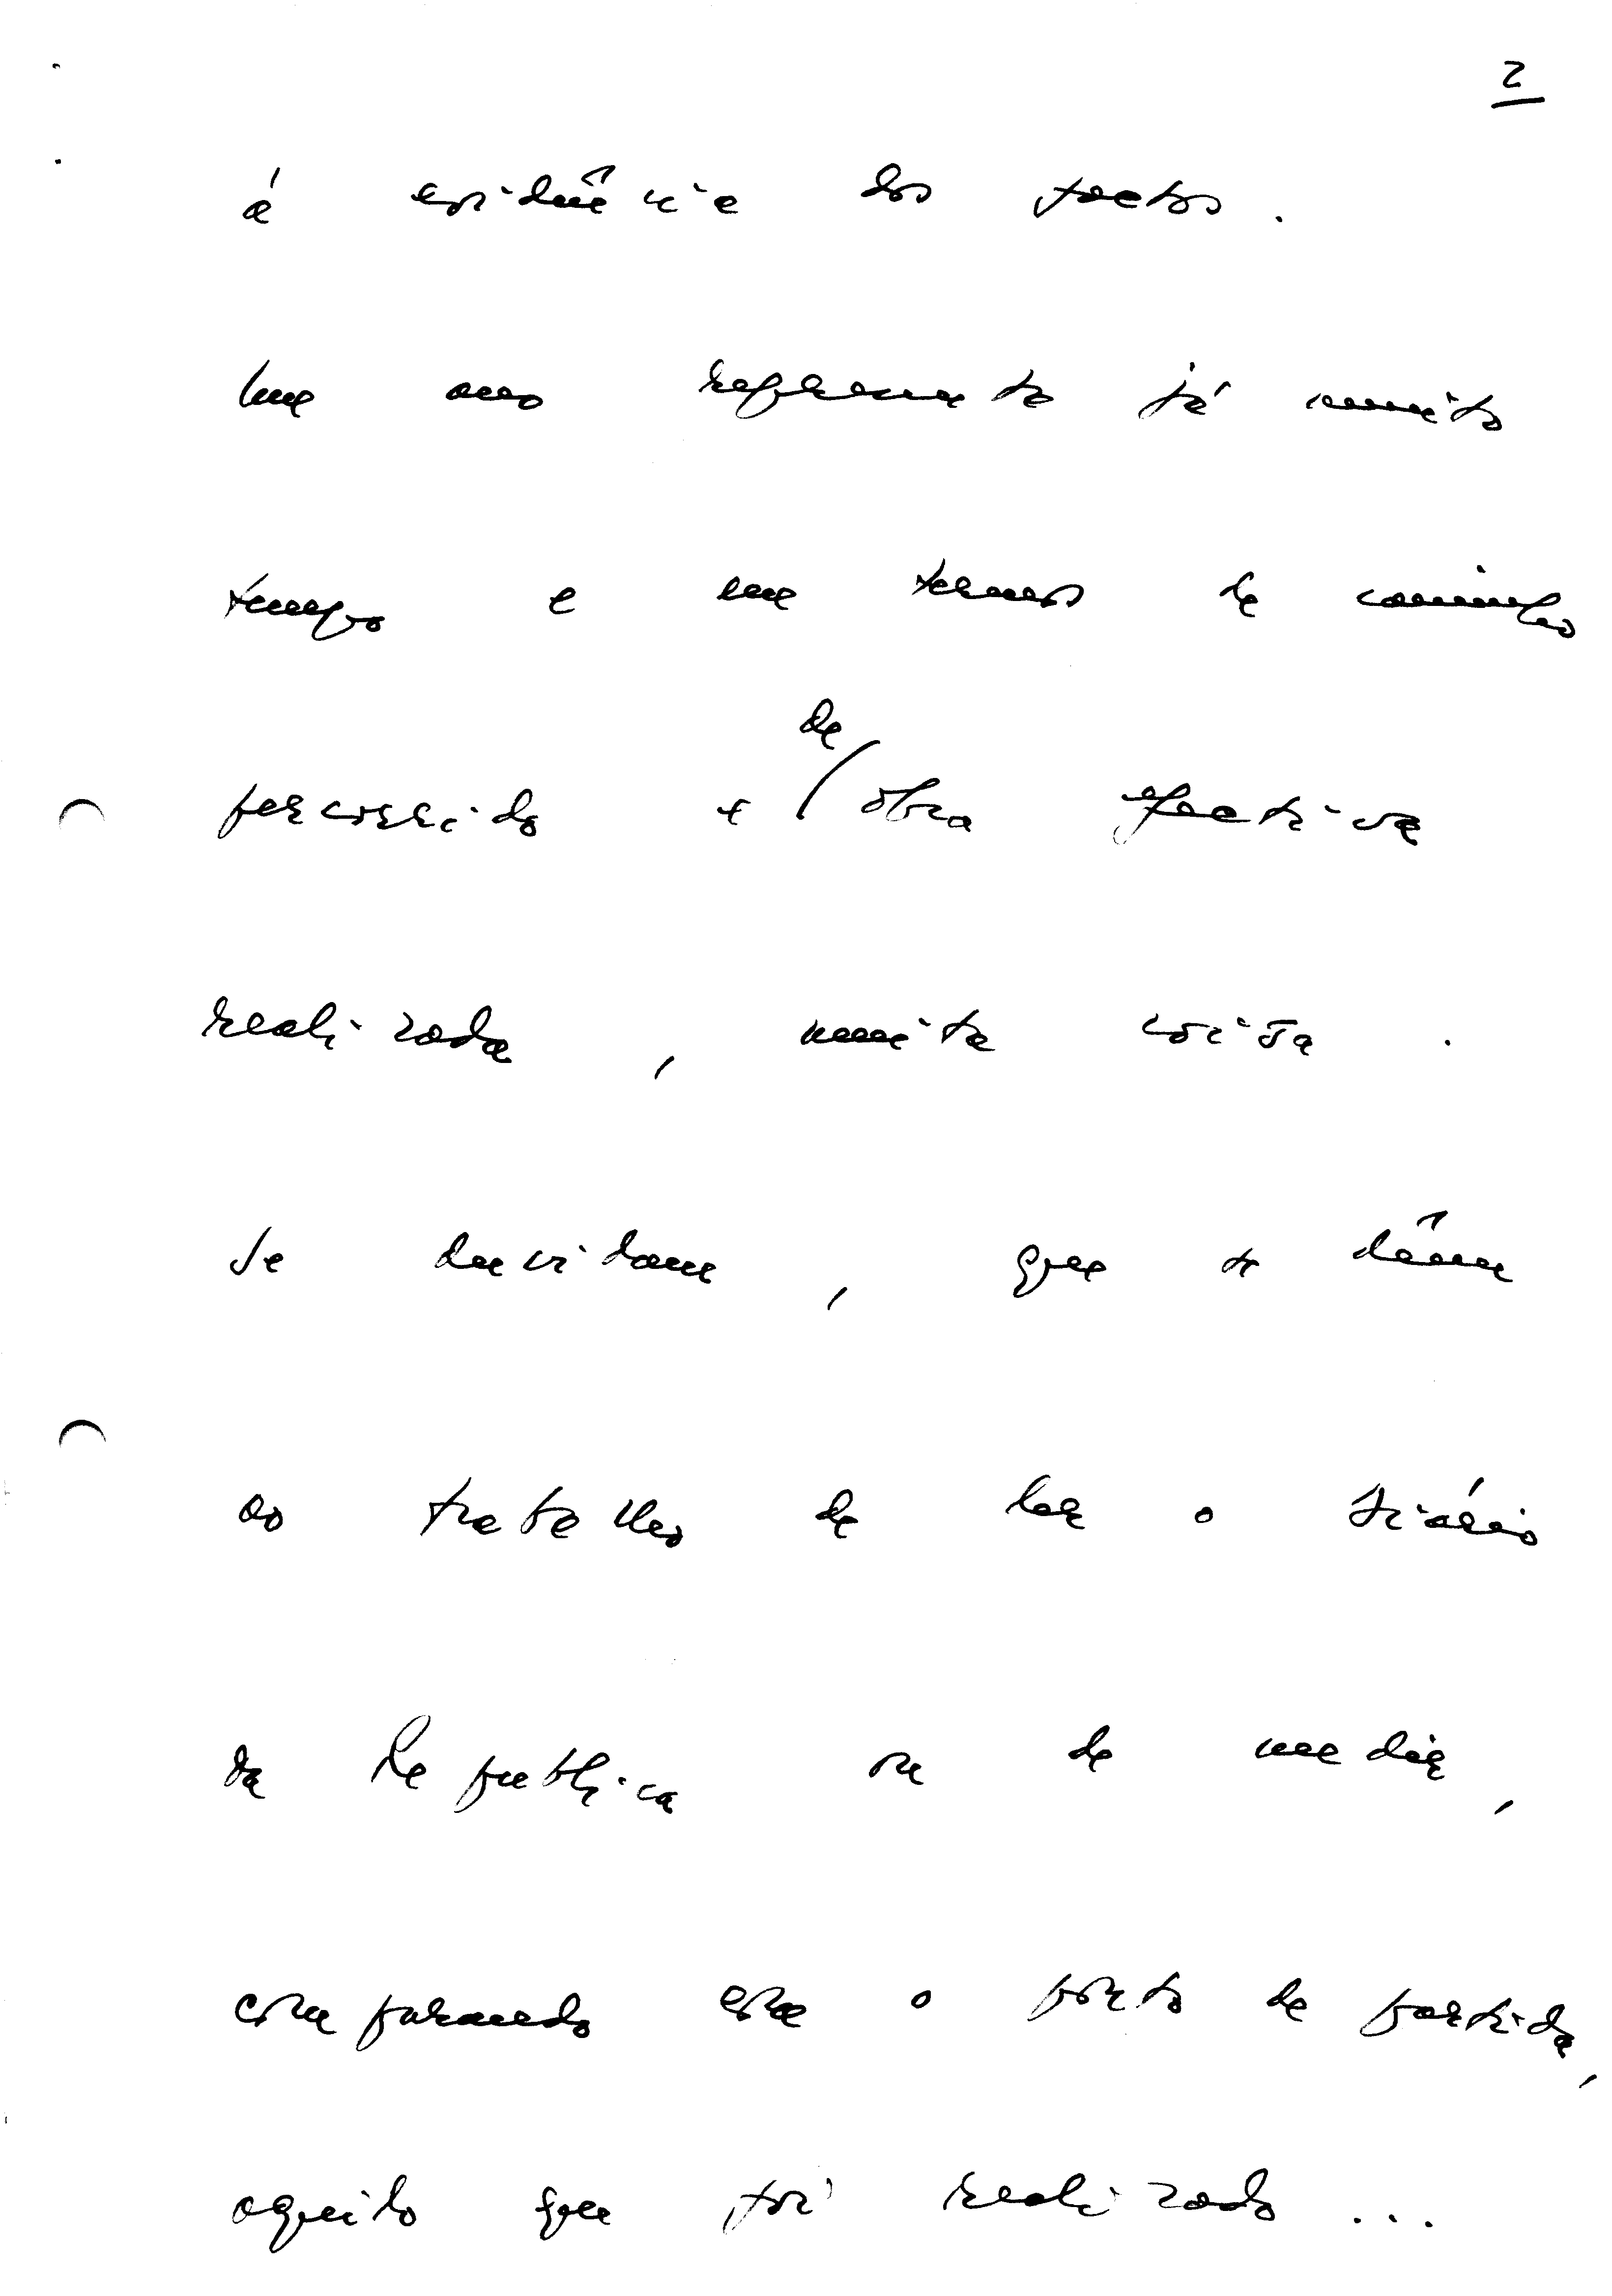 2
à evidência dos factos.
Um ano representa já muito
tempo e em termos de caminho
de
percorrido e / obra efectiva
realizada, muita coisa.
Se duvidam, que se dêem
ao trabalho de ler o Diário
da República ou de medir,
comparando com o ponto de partida,
aquilo que foi realizado...